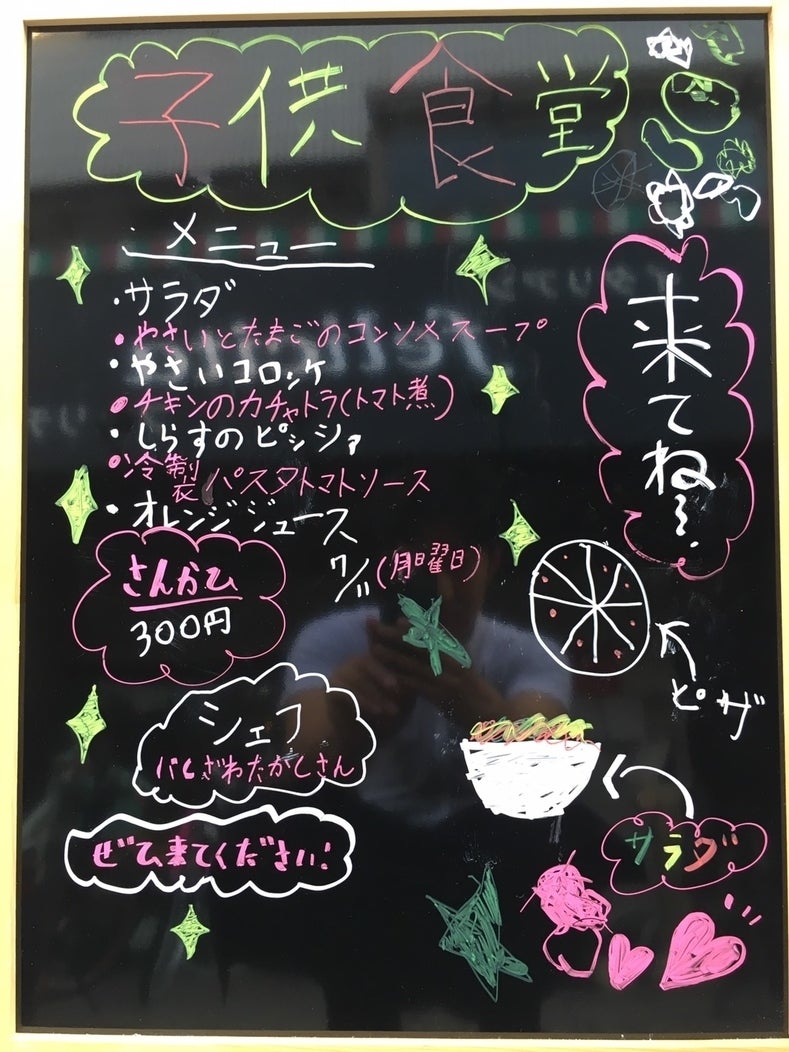 子供食堂
メニュー
・サラダ
・やさいとたまごのコンソメスープ
・やさいコロッケ
・チキンのカチャトラ(トマト煮)
・しらすのピッツァ
・冷製パスタトマトソース
・オレンジジュース
7/11(月曜日)
さんかひ
300円
来てね〜.
ピザ
シェフ
にしざわたかしさん
サラダ
ぜひ来てください!